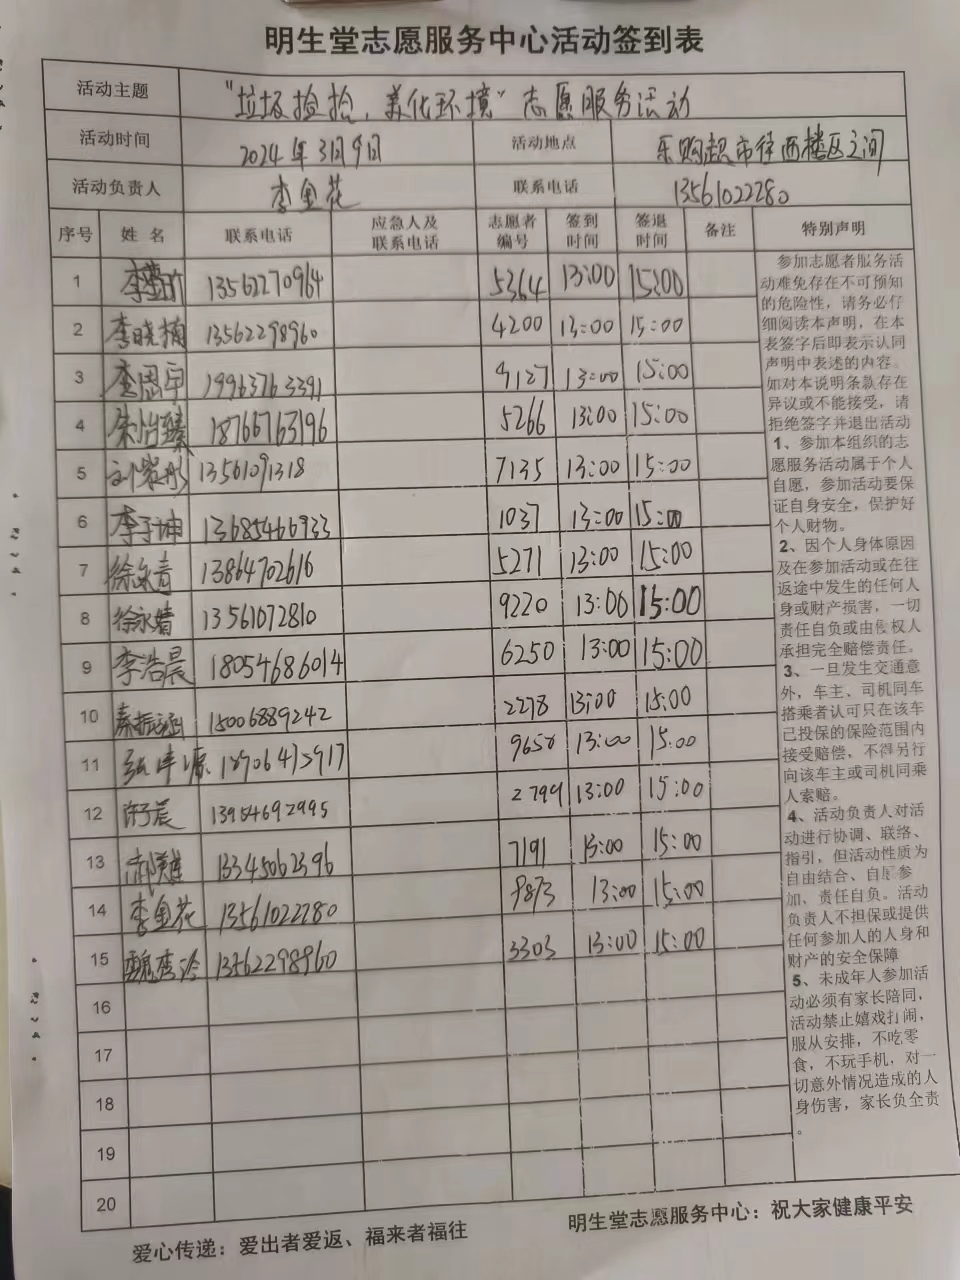 明生堂志愿服务中心活动签到表
活动主题 "垃圾捡拾,美化环境"志愿服务活动
活动时间 2024年3月9日 活动地点 乐购超市往西楼区之间
活动负责人 李鱼花 联系电话 13561022280
序号 姓名 联系电话 应急人及联系电话 志愿者编号 签到时间 签退时间 备注 特别声明
1 13562270964 5364 13:00 15:00
2 李晓楠 13562298960 4200 13:00 15:00
3 李恩宇 19963763391 9127 13:00 15:00
4 朱怡臻 18765763196 5266 13:00 15:00
5 刘紫彤 13561091318 7135 13:00 15:00
6 李子坤 13685466933 1037 13:00 15:00
7 徐永青 13864702616 5271 13:00 15:00
8 徐永婧 13561072810 9220 13:00 15:00
9 李浩晨 18054686014 6250 13:00 15:00
10 秦振涵 15006889242 2278 13:00 15:00
11 9658 13:00 15:00
12 许子晨 13954692995 2799 13:00 15:00
13 13345062396 7191 13:00 15:00
14 李鱼花 13561022280 9873 13:00 15:00
15 魏秀玲 13562298960 3303 13:00 15:00
16
17
18
19
20
参加志愿者服务活
动难免存在不可预知
的危险性,请务必仔
细阅读本声明,在本
表签字后即表示认同
声明中表述的内容。
如对本说明条款存在
异议或不能接受,请
拒绝签字并退出活动
1、参加本组织的志
愿服务活动属于个人
自愿,参加活动要保
证自身安全,保护好
个人财物。
2、因个人身体原因
及在参加活动或在往
返途中发生的任何人
身或财产损害,一切
责任自负或由侵权人
承担完全赔偿责任。
3、一旦发生交通意
外,车主、司机同车
搭乘者认可只在该车
已投保的保险范围内
接受赔偿,不得另行
向该车主或司机同乘
人索赔。
4、活动负责人对活
动进行协调、联络、
指引,但活动性质为
自由结合、自愿参
加、责任自负。活动
负责人不担保或提供
任何参加人的人身和
财产的安全保障
5、未成年人参加活
动必须有家长陪同,
活动禁止嬉戏打闹,
服从安排,不吃零
食,不玩手机,对一
切意外情况造成的人
身伤害,家长负全责
。
爱心传递:爱出者爱返、福来者福往 明生堂志愿服务中心:祝大家健康平安